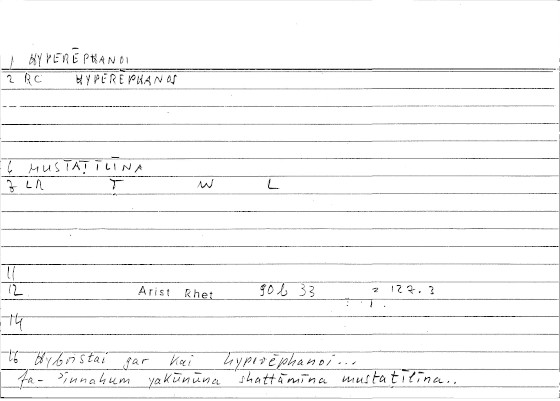 1 HYPERĒPHANOI
2 RC HYPERĒPHANOS
6 MUSTAṬĪLĪNA
7 LR Ṭ W L
11
12 Arist Rhet 90b 33 = 127.3
14
16 Hybristai gar kai hyperēphanoi...
fa-ʾinnahum yakūnūna shattāmīna mustaṭīlīna..